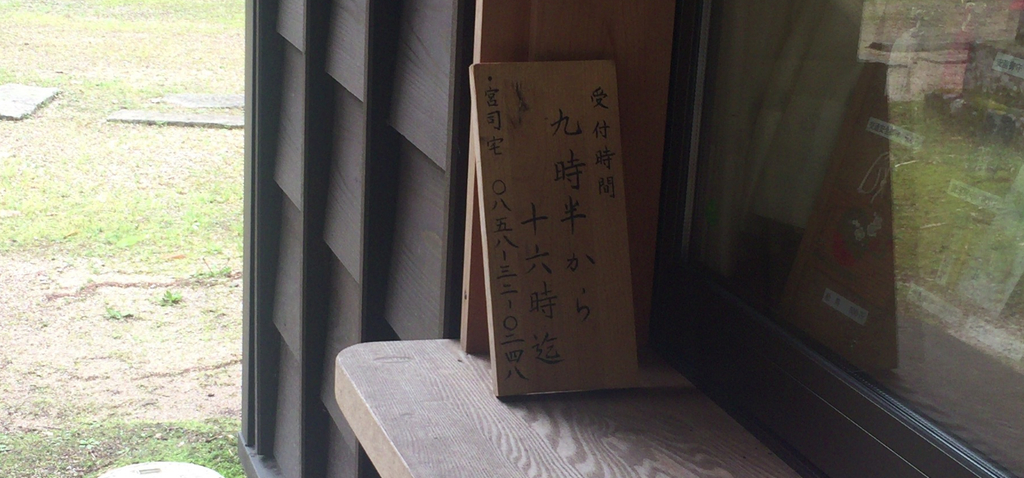 受付時間
九時半から
十六時迄
・宮司宅 〇八五八-三二-〇二四八